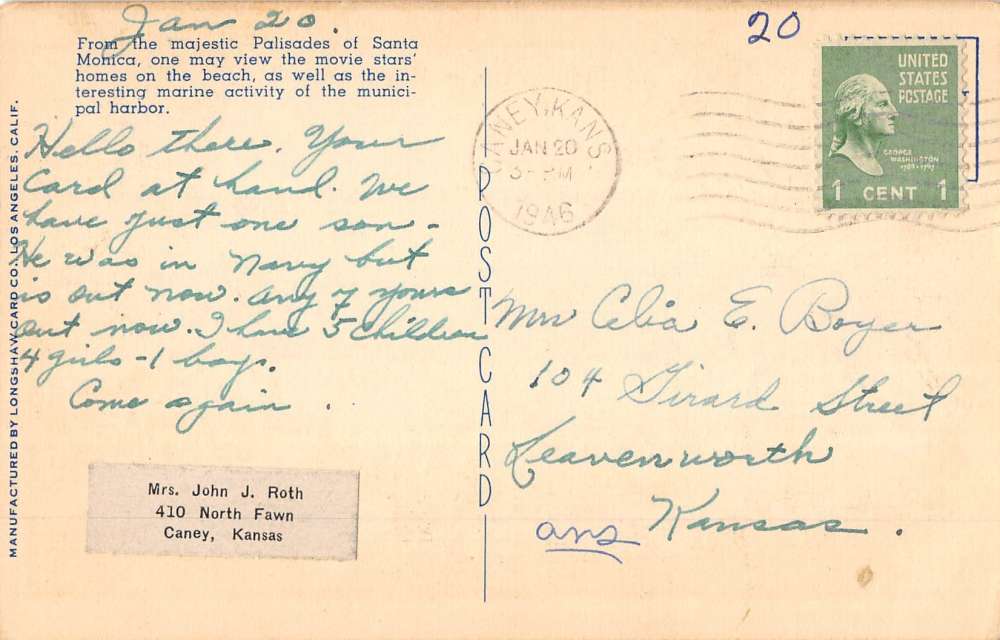 Jan 20.
From the majestic Palisades of Santa
Monica, one may view the movie stars'
homes on the beach, as well as the in-
teresting marine activity of the munici-
pal harbor.
Hello there. Your
Card at hand. We
have just one son -
He was in Navy but
is out now. Any of yours
out now. I have 5 children
4 girls - 1 boy.
Come again.
Mrs. John J. Roth
410 North Fawn
Caney, Kansas
MANUFACTURED BY LONGSHAW CARD CO. LOS ANGELES, CALIF.
POST CARD
20
CANEY, KANS.
JAN 20
3 - PM
1946
UNITED
STATES
POSTAGE
GEORGE
WASHINGTON
1789-1797
1 CENT 1
Mrs Celia E. Boyer
104 Girard Street
Leavenworth
Kansas.
ans